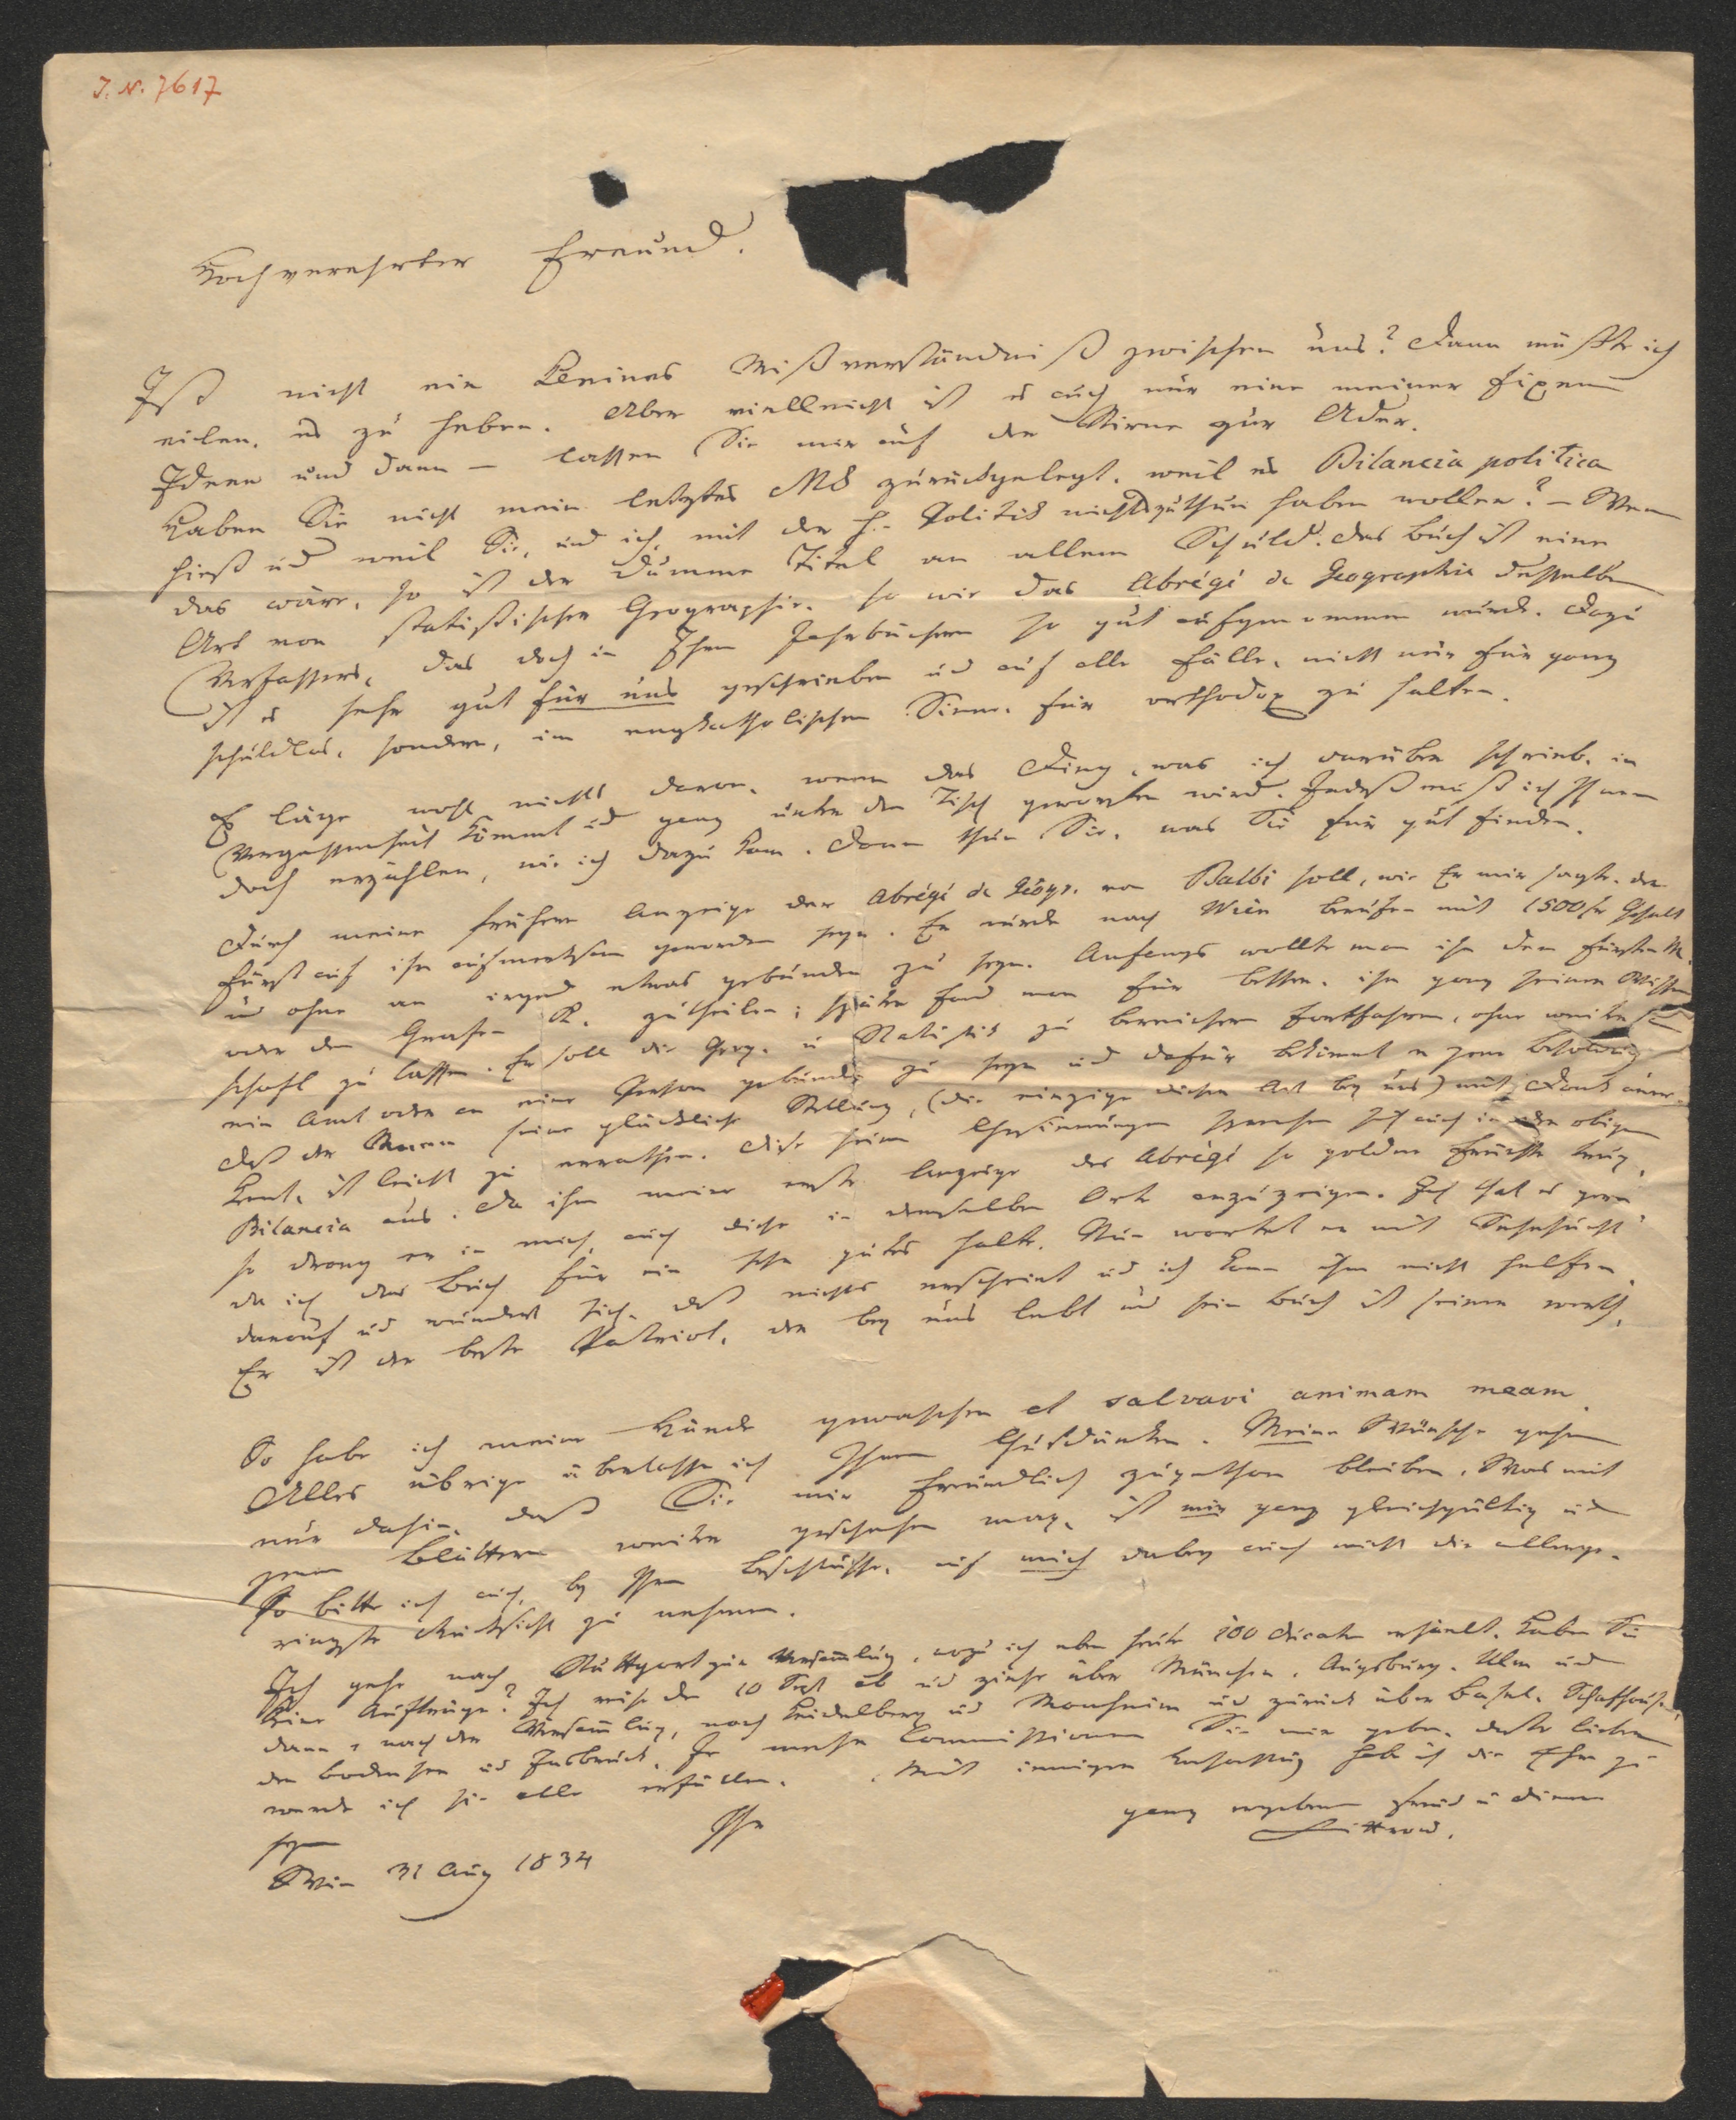 J. N. 7617
Hochverehrter Freund.
Ist nicht ein kleines Mißverständniß zwischen uns? Dann müßte ich
eilen, es zu heben. Aber vielleicht ist es auch nur eine meiner fixen
Ideen und dann – lassen Sie mir auf der Stirne zur Ader.
Haben Sie nicht mein letztes MS zurückgelegt, weil es Bilancia politica
hieß und weil Sie, und ich, mit der h. Politik nichts zu thun haben wollen? – Wenn
das wäre, so ist der dumme Titel an allem Schuld. Das Buch ist eine
Art von statistischer Geographie, so wie das Abrégé de Geographie desselben
Verfassers, das doch in Ihren Jahrbüchern so gut aufgenommen wurde. Dazu
ist es sehr gut für uns geschrieben und auf alle Fälle, nicht nur für ganz
schuldlos, sondern, im engkatholischen Sinne, für orthodox zu halten.
Es läge wohl nichts daran, wenn das Ding, was ich darüber schrieb, in
Vergessenheit kömmt und ganz unter den Tisch geworfen wird. Indeß muß ich Ihnen
doch erzählen, wie ich dazu kam. Dann thun Sie, was Sie für gut finden.
Durch meine frühere Anzeige der Abrégé de Géogr. von Balbi soll, wie Er mir sagte, der
Fürst auf ihn aufmerksam geworden seyn. Er wurde nach Wien berufen mit 1500 fr Gehalt
und ohne an irgend etwas gebunden zu seyn. Anfangs wollte man ihn dem Fürsten M.
oder dem Grafen K. zutheilen; später fand man für besser, ihn ganz seiner Wissen
schaft zu lassen. Er soll die Geog. u Statistik zu bereichern fortfahren, ohne weiter an
ein Amt oder an eine Person gebunden zu seyn und dafür bekömmt er jene Besoldung
Daß der Mann seine glückliche Stellung, (die einzige dieser Art bey uns) mit Dank aner-
kent, ist leicht zu errathen. Diese seine Gesinnungen sprechen sich auch in der obigen
Bilancia aus. Da ihm meine erste Anzeige des Abrégé so goldene Früchte trug,
so drang er in mich, auch diese in demselben Orte anzuzeigen. Ich that es gern
da ich das Buch für ein sehr gutes halte. Nun wartet er mit Sehnsucht
darauf und wundert sich, daß nichts erscheint und ich kann ihm nicht helfen.
Er ist der beste Patriot, der bey uns lebt und sein Buch ist seiner werth.
So habe ich meine Hände gewaschen et salvavi animam meam.
Alles übrige überlasse ich Ihrem Gutdünken. Meine Wünsche gehen
nur dahin, daß Sie mir freundlich zugethan bleiben. Was mit
jenen Blättern weiter geschehen mag, ist mir ganz gleichgültig und
so bitte ich auch, bey Ihrem Beschlusse, auf mich dabey auch nicht die allerge-
ringste Rücksicht zu nehmen.
Ich gehe nach Stuttgart zur Versamlung, wozu ich eben heute 100 Ducaten erhielt. Haben Sie
keine Aufträge? Ich reise den 10 Sept ab und ziehe über München, Augsburg, Ulm und
dann, nach der Versamlung, nach Heidelberg und Manheim und zurück über Basel, Schafhausen,
den Bodensee und Insbruck. Je mehr Commissionen Sie mir geben, desto lieber
werde ich sie alle erfüllen. Mit inniger Hochachtung habe ich die Ehre zu
seyn Ihr ganz ergebener Freund u Diener
Littrow.
Wien 31 Aug 1834